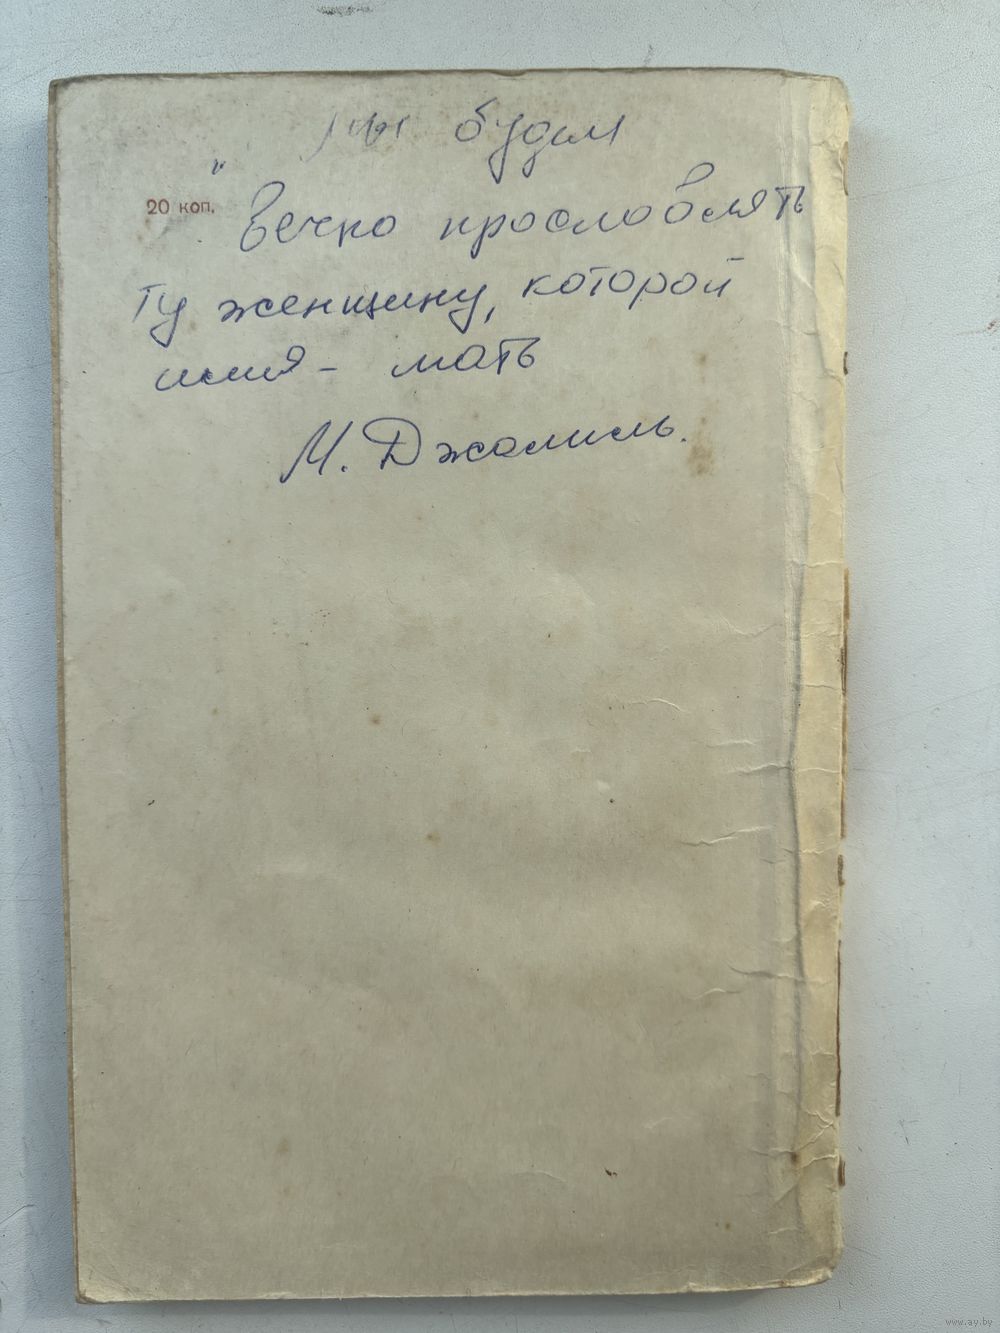 Мы будем
"
20 коп.
Вечно прославлять
ту женщину, которой
имя - мать
М. Джалиль.
www.ay.by